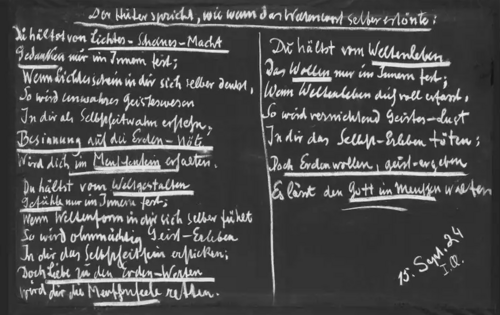 Der Hüter spricht, wie wenn das Weltenwort selber ertönte:
Du hältst von Lichtes-Scheines-Macht
Gedanken nur im Innern fest;
Wenn Lichtesschein in dir sich selber denket,
So wird unwahres Geisteswesen
In dir als Selbstheitwahn erstehn;
Besinnung auf die Erden-Nöte
Wird dich im Menschensein erhalten.
Du hältst vom Weltgestalten
Gefühle nur im Innern fest;
Wenn Weltenform in dir sich selber fühlet
So wird ohnmächtig Geist-Erleben
In dir das Selbstheitsein ersticken;
Doch Liebe zu den Erden-Werten
wird dir die Menschenseele retten.
Du hältst vom Weltenleben
Das Wollen nur im Innern fest;
Wenn Weltenleben dich voll erfasst,
So wird vernichtend Geistes-Lust
In dir das Selbst-Erleben töten;
Doch Erdenwollen, geist-ergeben
Es lässt den Gott im Menschen walten
15. Sept. 24